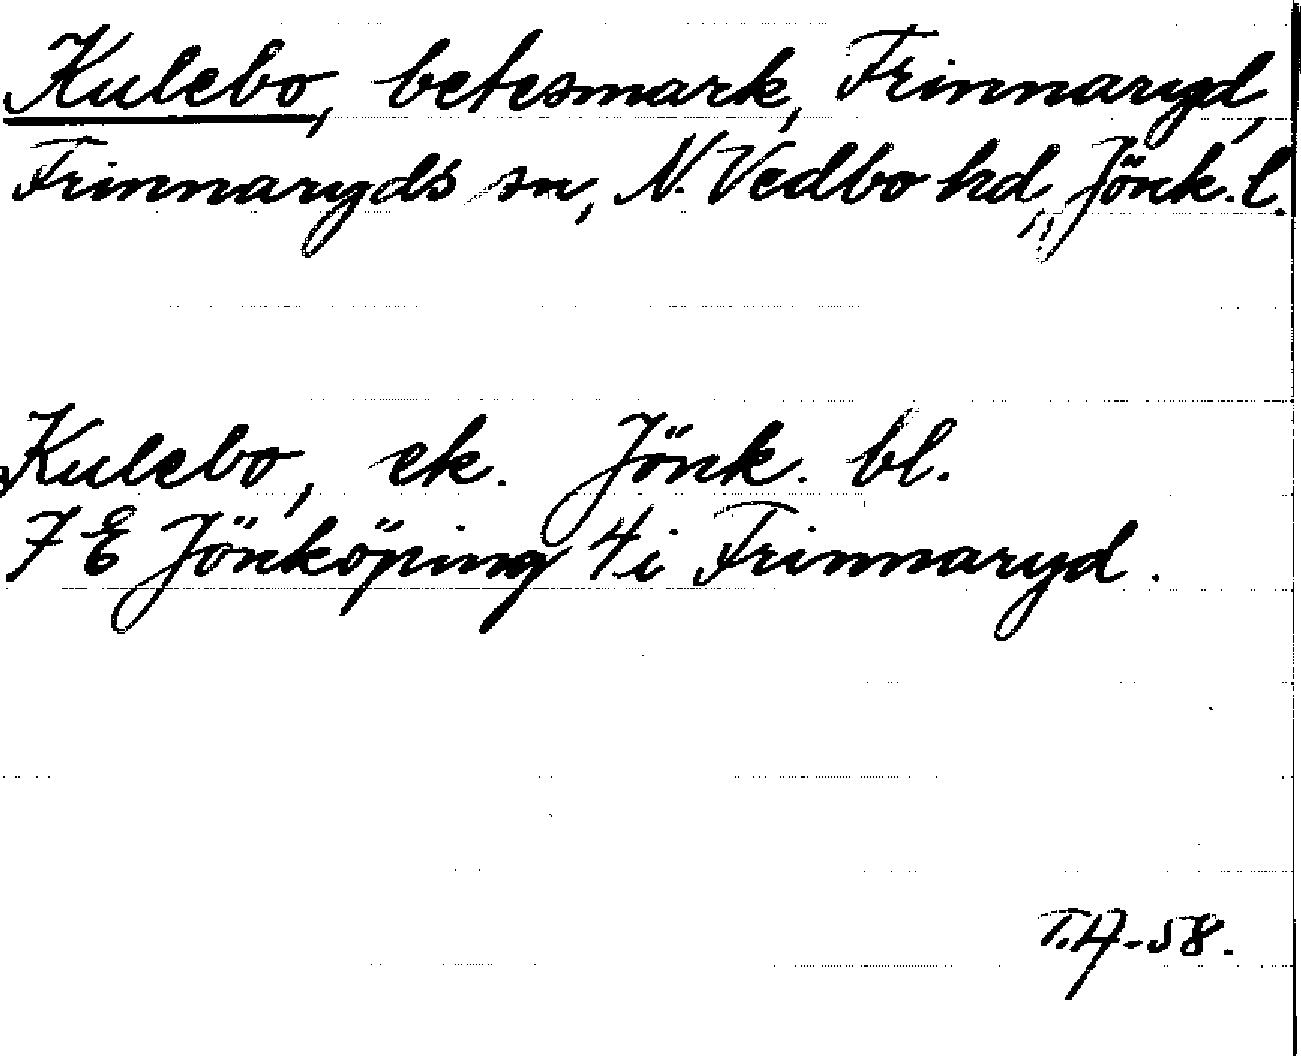 Kulebo, betesmark, Frinnaryd,
Frinnaryds sn, N. Vedbo hd, Jönk. l.
Kulebo, ek. Jönk. bl.
7 E Jönköping 4i Frinnaryd.
T.A-58.